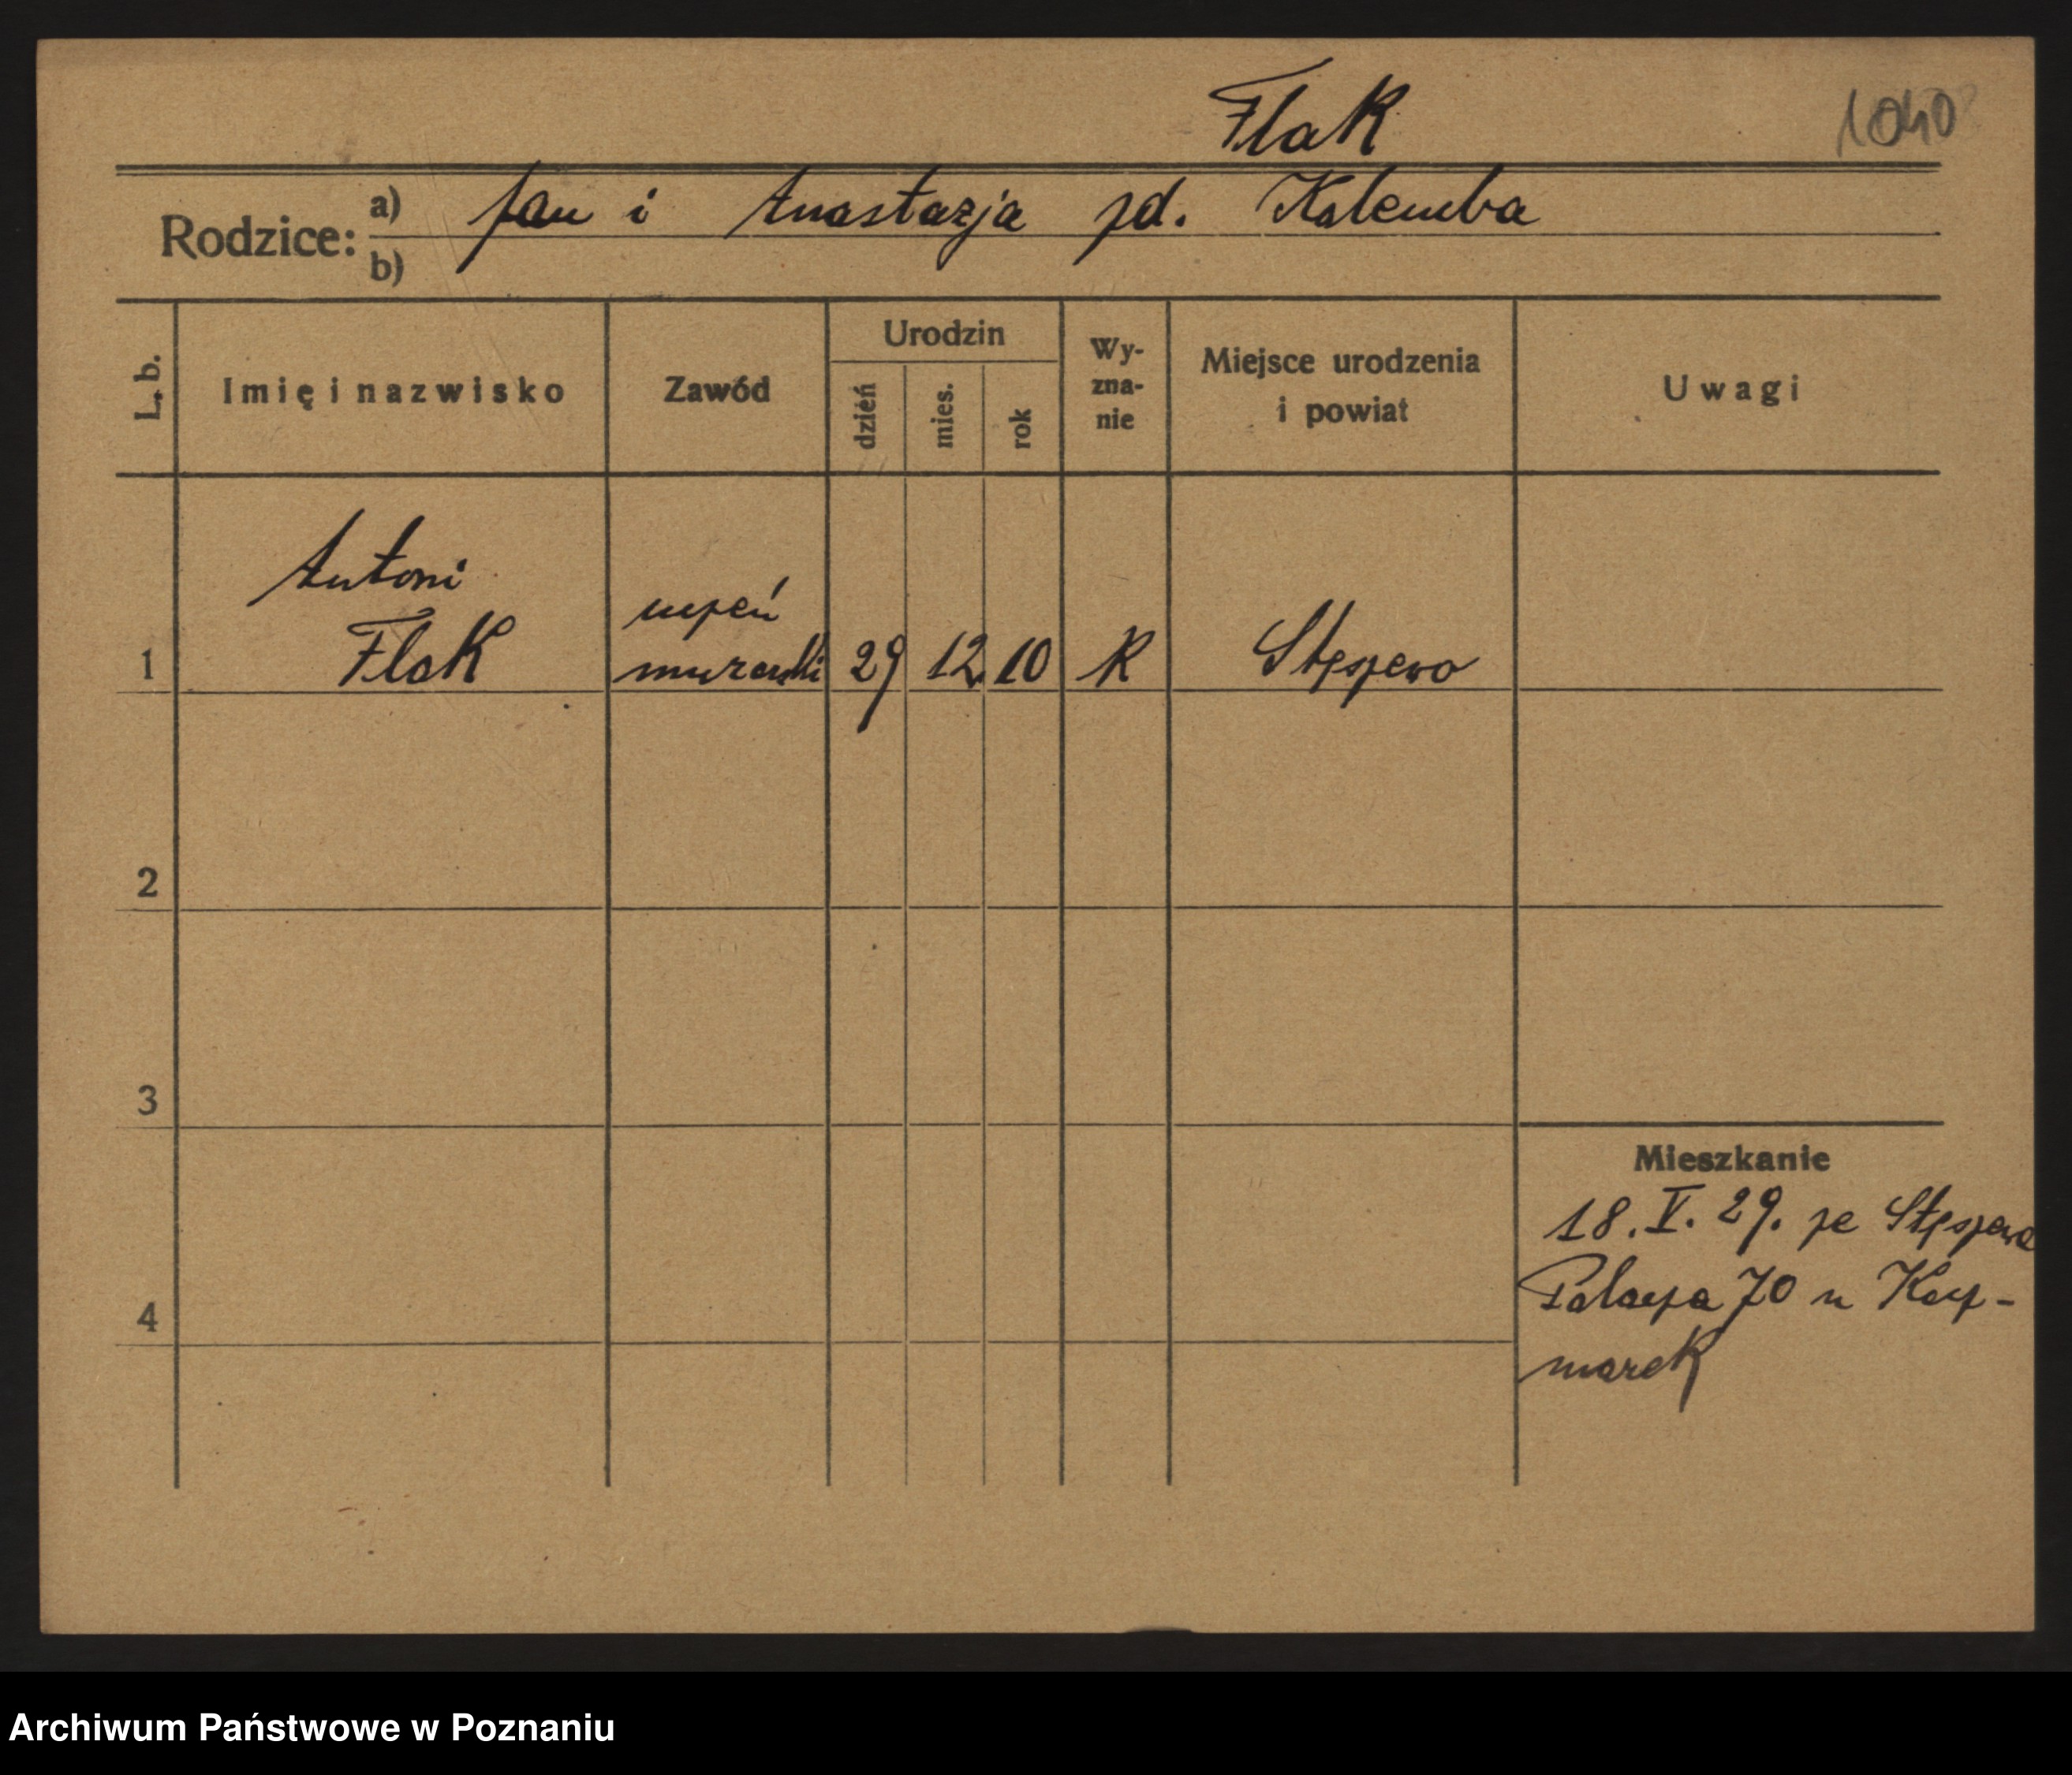 Flak
1040
Rodzice: a) Jan i Anastazja zd. Kalemba
b)
L. b. Imię i nazwisko Zawód Urodzin dzień mies. rok Wy-zna-nie Miejsce urodzenia i powiat Uwagi
Antoni
Flak
uczeń
murarski
1 29 12. 10 K Stęszewo
2
3
4
Mieszkanie
18. V. 29. ze Stęszewa
Palacza 70 u Kacz-
marek
Archiwum Państwowe w Poznaniu